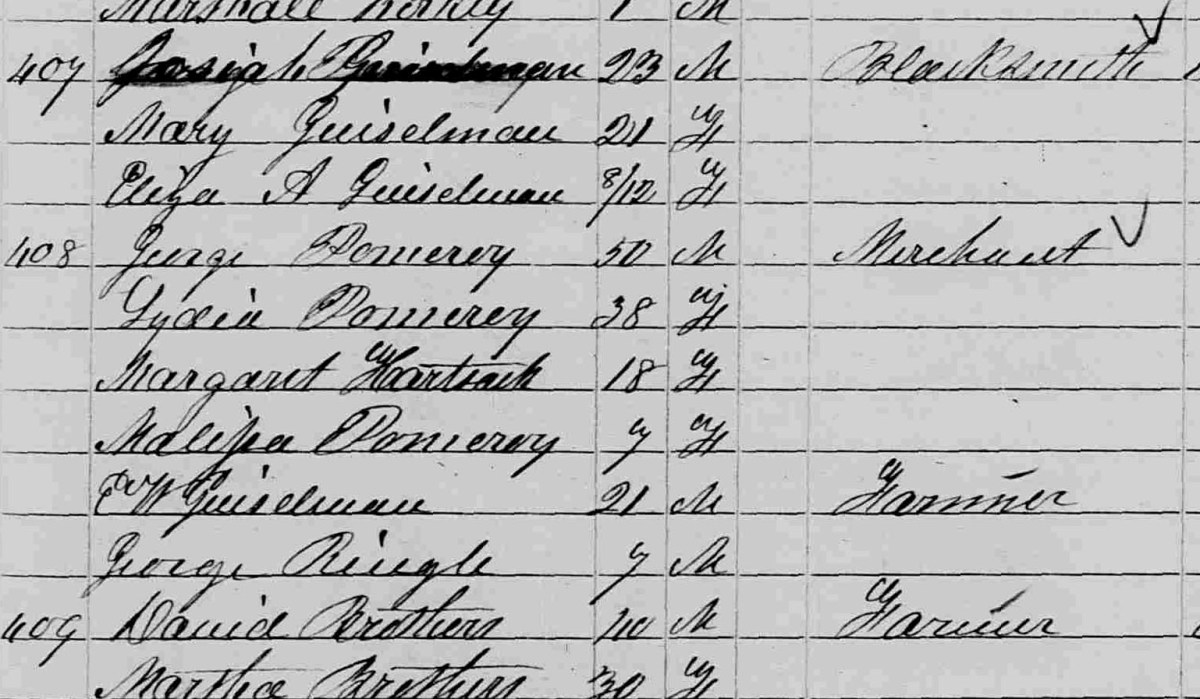 Marshall 1 M
407 Josiah Guiselman 23 M Blacksmith
Mary Guiselman 21 F
Eliza A Guiselman 8/12 F
408 George Pomeroy 50 M Merchant
Lydia Pomeroy 38 F
Margaret Hartsock 18 F
Malissa Pomeroy 7 F
E W Guiselman 21 M Farmer
George Ringle 7 M
409 David Brothers 40 M Farmer
Martha Brothers 30 F